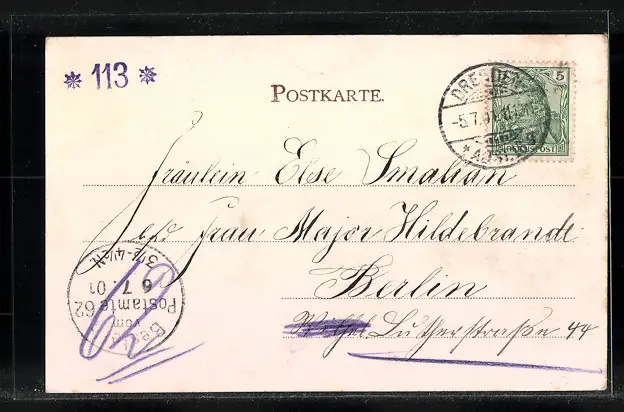 * 113 *
POSTKARTE.
DRESDEN
-5.7.01
* ALTST.
5
REICHSPOST
Fräulein Else Smalian
bei Frau Major Hildebrandt
Berlin
Lutherstraße 44
62
Best.
vom
Postamte 62
6 7. 01
3½-4½N.